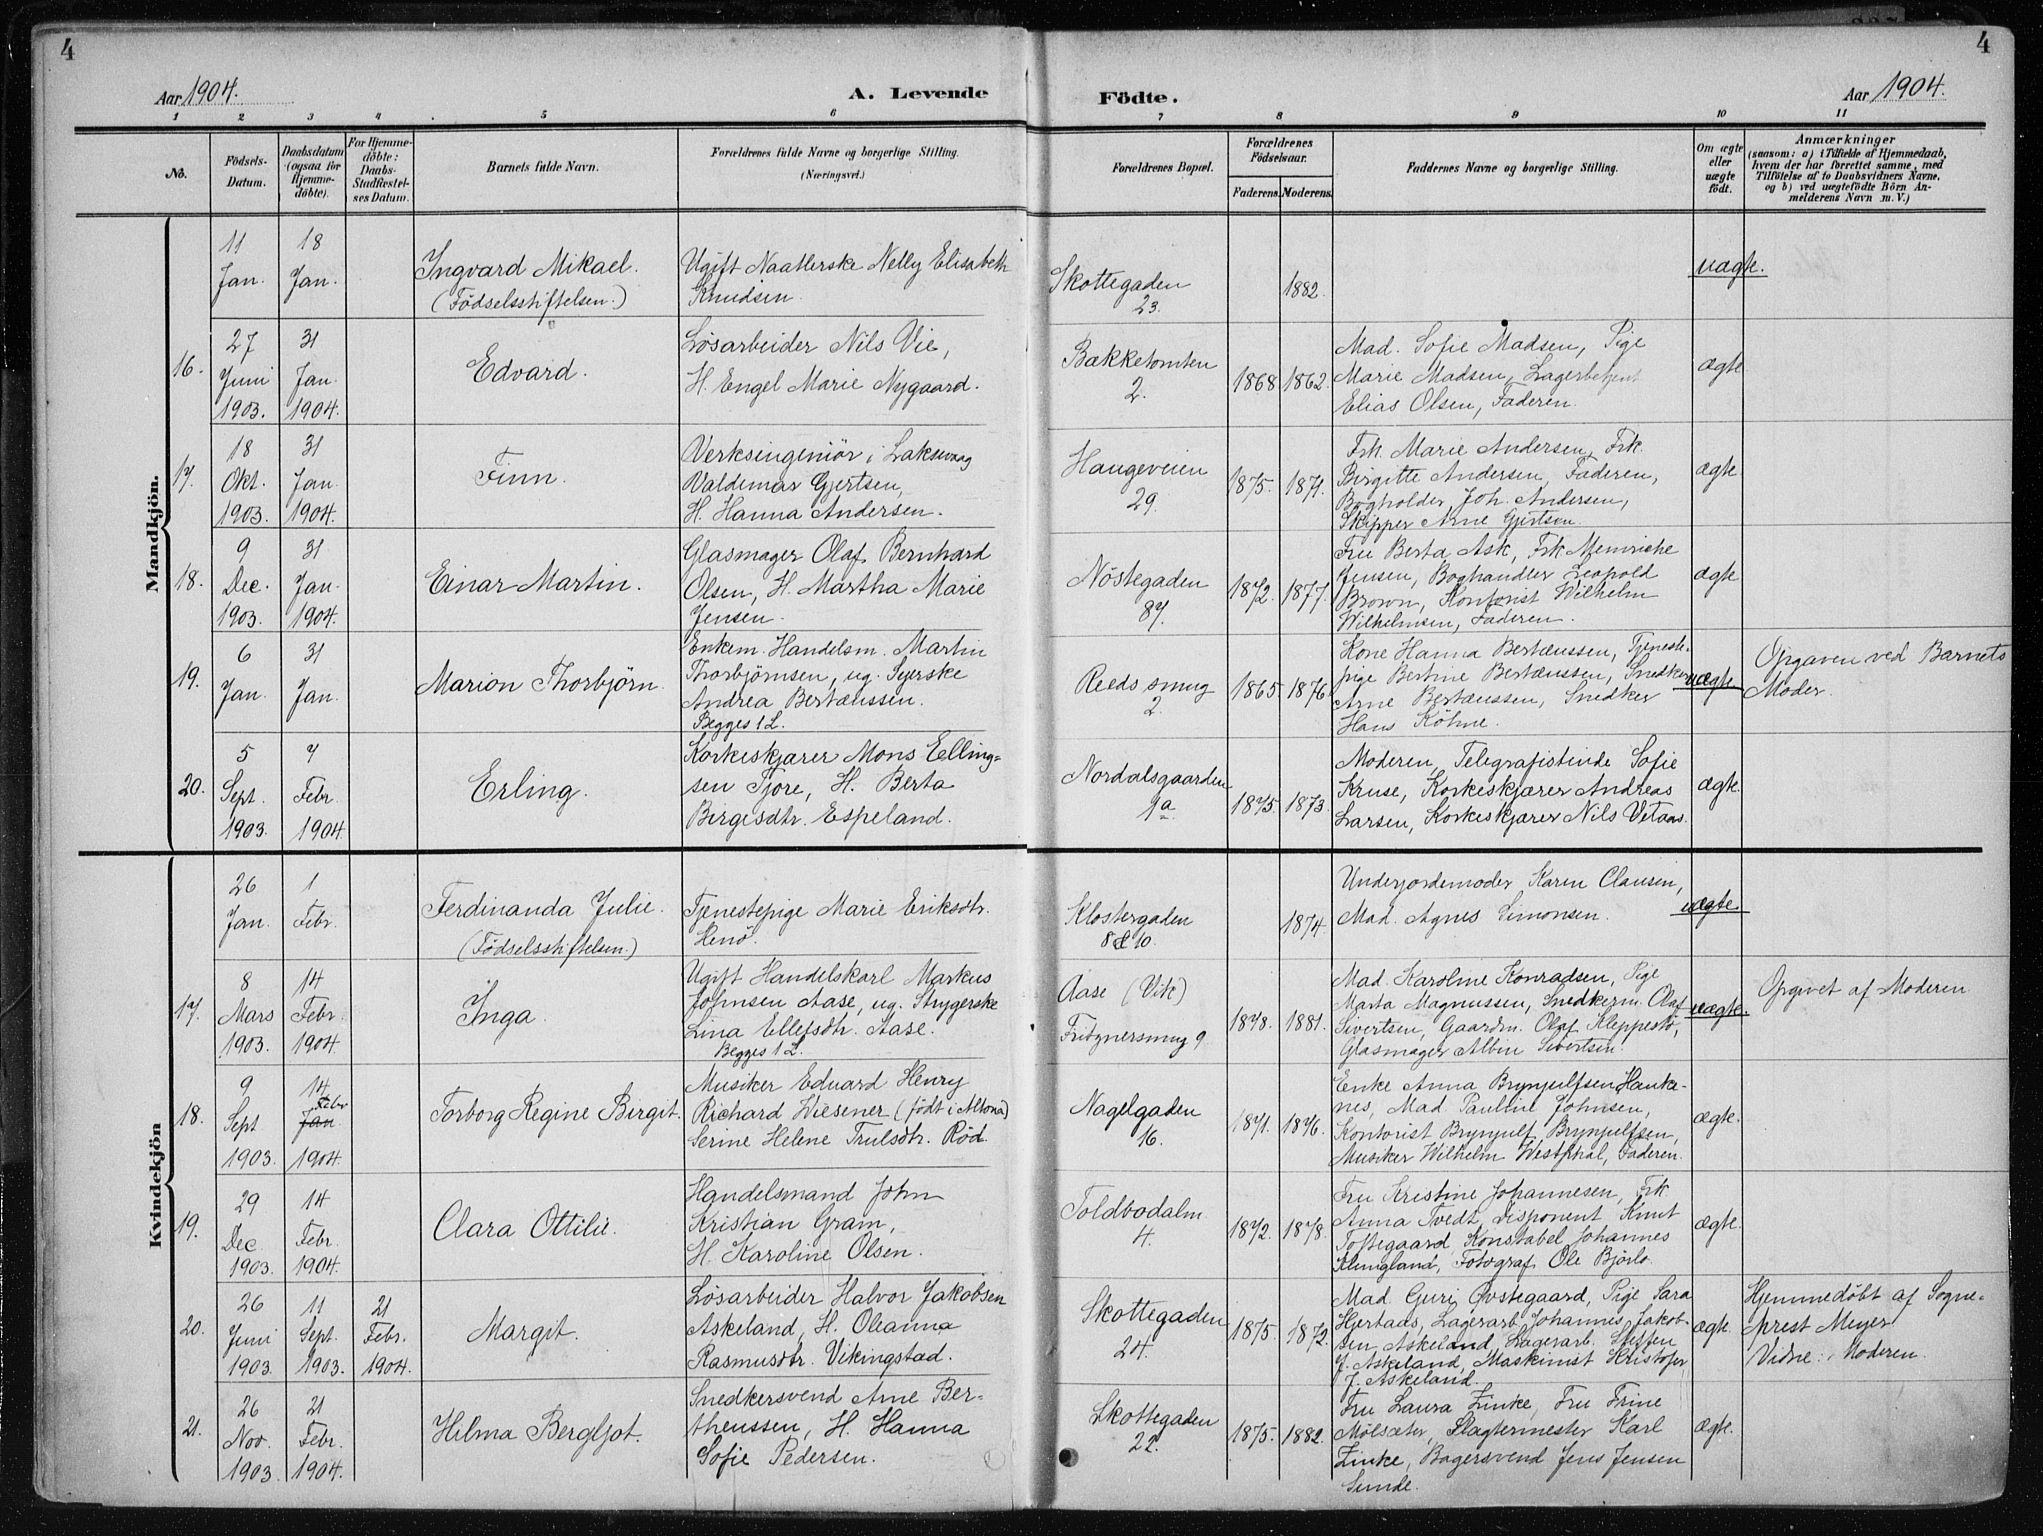 4
Aar 1904.
A. Levende
Födte.
Aar 1904.
4
1 2 3 4 5 6 7 8 9 10 11
No.
Födsels-
Datum.
Daabsdatum
(ogsaa for
Hjemme-
döbte).
For Hjemme-
döbte:
Daabs-
Stadfæstel-
ses Datum.
Barnets fulde Navn.
Forældrenes fulde Navne og borgerlige Stilling.
(Næringsvei.)
Forældrenes Bopæl.
Forældrenes
Födselsaar.
Faderens. Moderens.
Faddernes Navne og borgerlige Stilling.
Om ægte
eller
uægte
födt.
Anmærkninger
(saasom: a) i Tilfælde af Hjemmedaab,
hvem der har forrettet samme, med
Tilföielse af to Daabsvidners Navne,
og b) ved uægtefödte Börn An-
melderens Navn m. V.)
Mandkjön.
11 Jan.
18 Jan.
Ingvard Mikael.
(Födselsstiftelsen.)
Ugift Naatlerske Nelly Elisabeth
Knudsen.
Skottegaden
23.
1882.
uægte.
16.
27 Juni 1903.
31 Jan. 1904.
Edvard.
Løsarbeider Nils Vie,
H. Engel Marie Nygaard.
Bakketomten
2.
1868 1862.
Mad. Sofie Madsen, Pige
Marie Madsen, Lagerbetjent
Elias Olsen, Faderen.
ægte
17.
18 Okt. 1903.
31 Jan. 1904.
Finn.
Verksingeniör i Laksevaag
Valdemar Gjertsen,
H. Hanna Andersen.
Haugeveien
29.
1875. 1871.
Frk. Marie Andersen, Frk.
Birgitte Andersen, Faderen,
Bogholder Joh. Andersen,
Skipper Arne Gjertsen.
ægte
18.
9 Dec. 1903.
31 Jan. 1904.
Einar Martin.
Glasmager Olaf Bernhard
Olsen, H. Martha Marie
Jensen.
Nöstegaden
87.
1872. 1877.
Fru Berta Ask, Frk
Jensen, Boghandler Leopold
Brown, Kontorist Wilhelm
Wilhelmsen, Faderen.
ægte
19.
6 Jan.
31 Jan.
Marion Thorbjörn.
Enkem. Handelsm. Martin
Thorbjörnsen, ug. Syerske
Andrea Bertæussen.
Begges 1 L.
Reeds smug
2.
1865. 1876.
Kone Hanna Bertæussen, Tjeneste-
pige Bertine Bertæussen, Snedker
Arne Bertæussen, Snedker
Hans Köhne.
uægte.
Opgaven ved Barnets
Moder.
20.
5 Sept. 1903.
7 Febr. 1904
Erling.
Korkeskjærer Mons Elling-
sen Tjore, H. Berta
Birgesdtr. Espeland.
Nordalsgaarden
1a.
1875. 1873.
Moderen, Telegrafistinde Sofie
Kruse, Korkeskjærer Andreas
Larsen, Korkeskjærer Nils Vetaas.
ægte.
Kvindekjön
26 Jan.
1 Febr.
Ferdinanda Julie.
(Födselsstiftelsen.)
Tjenestepige Marie Eriksdtr.
Henö.
Klostergaden
8 & 10.
1874.
Underjordemoder Karen Clausen,
Mad. Agnes Simonsen.
uægte.
17.
8 Mars 1903.
14 Febr. 1904.
Inga.
Ugift Handelskarl Markus
Johnsen Aase, ug. Strygerske
Lina Ellefsdtr. Aase.
Begges 1 L.
Aase (Vik)
Fridznersmug 9
1878. 1881.
Mad. Karoline Konradsen, Pige
Marta Magnussen, Snedkerm. Olaf
Sivertsen, Gaardm. Olaf Kleppestö,
Glasmager Albin Sivertsen.
uægte.
Opgivet af Moderen
18.
9 Sept 1903.
14 Febr Jan 1904.
Torborg Regine Birgit.
Musiker Eduard Henry
Richard Wiesener (født i Altona)
Serine Helene Trulsdtr. Röd.
Nagelgaden
16.
1871. 1876.
Enke Anna Brynjulfsen Hauke-
nes, Mad. Pauline Johnsen,
Kontorist Brynjulf Brynjulfsen,
Musiker Wilhelm Westphal, Faderen.
ægte.
19.
29 Dec 1903.
14 Febr. 1904.
Clara Ottilie.
Handelsmand John
Kristian Gram,
H. Karoline Olsen.
Toldbodalm.
4.
1872. 1878.
Fru Kristine Johannesen, Frk.
Anna Tvedt, Disponent Knut
Toftegaard, Konstabel Johannes
Klungland, Fotograf Ole Bjørlo.
ægte.
20.
26 Juni 1903.
11 Sept. 1903.
21 Febr. 1904.
Margit.
Løsarbeider Halvor Jakobsen
Askeland, H. Oleanna
Rasmusdtr. Vikingstad.
Skottegaden
24.
1875. 1872.
Mad. Guri Øvstegaard, Pige Sara
Hjertads, Lagerarb. Johannes Jakob-
sen Askeland, Lagerarb. Steffen
J. Askeland, Maskinist Kristofer
J. Askeland.
ægte.
Hjemmedöbt af Sogne-
prest Meyer.
Vidne: Moderen.
21.
26 Nov. 1903.
21 Febr. 1904.
Hilma Bergljot.
Snedkersvend Arne Ber-
theussen, H. Hanna
Sofie Pedersen.
Skottegaden
22.
1875. 1882.
Fru Laura Zinke, Fru Trine
Mølsæter, Slagtermester Karl
Zinke, Bagersvend Jens Jensen
Sunde.
ægte.